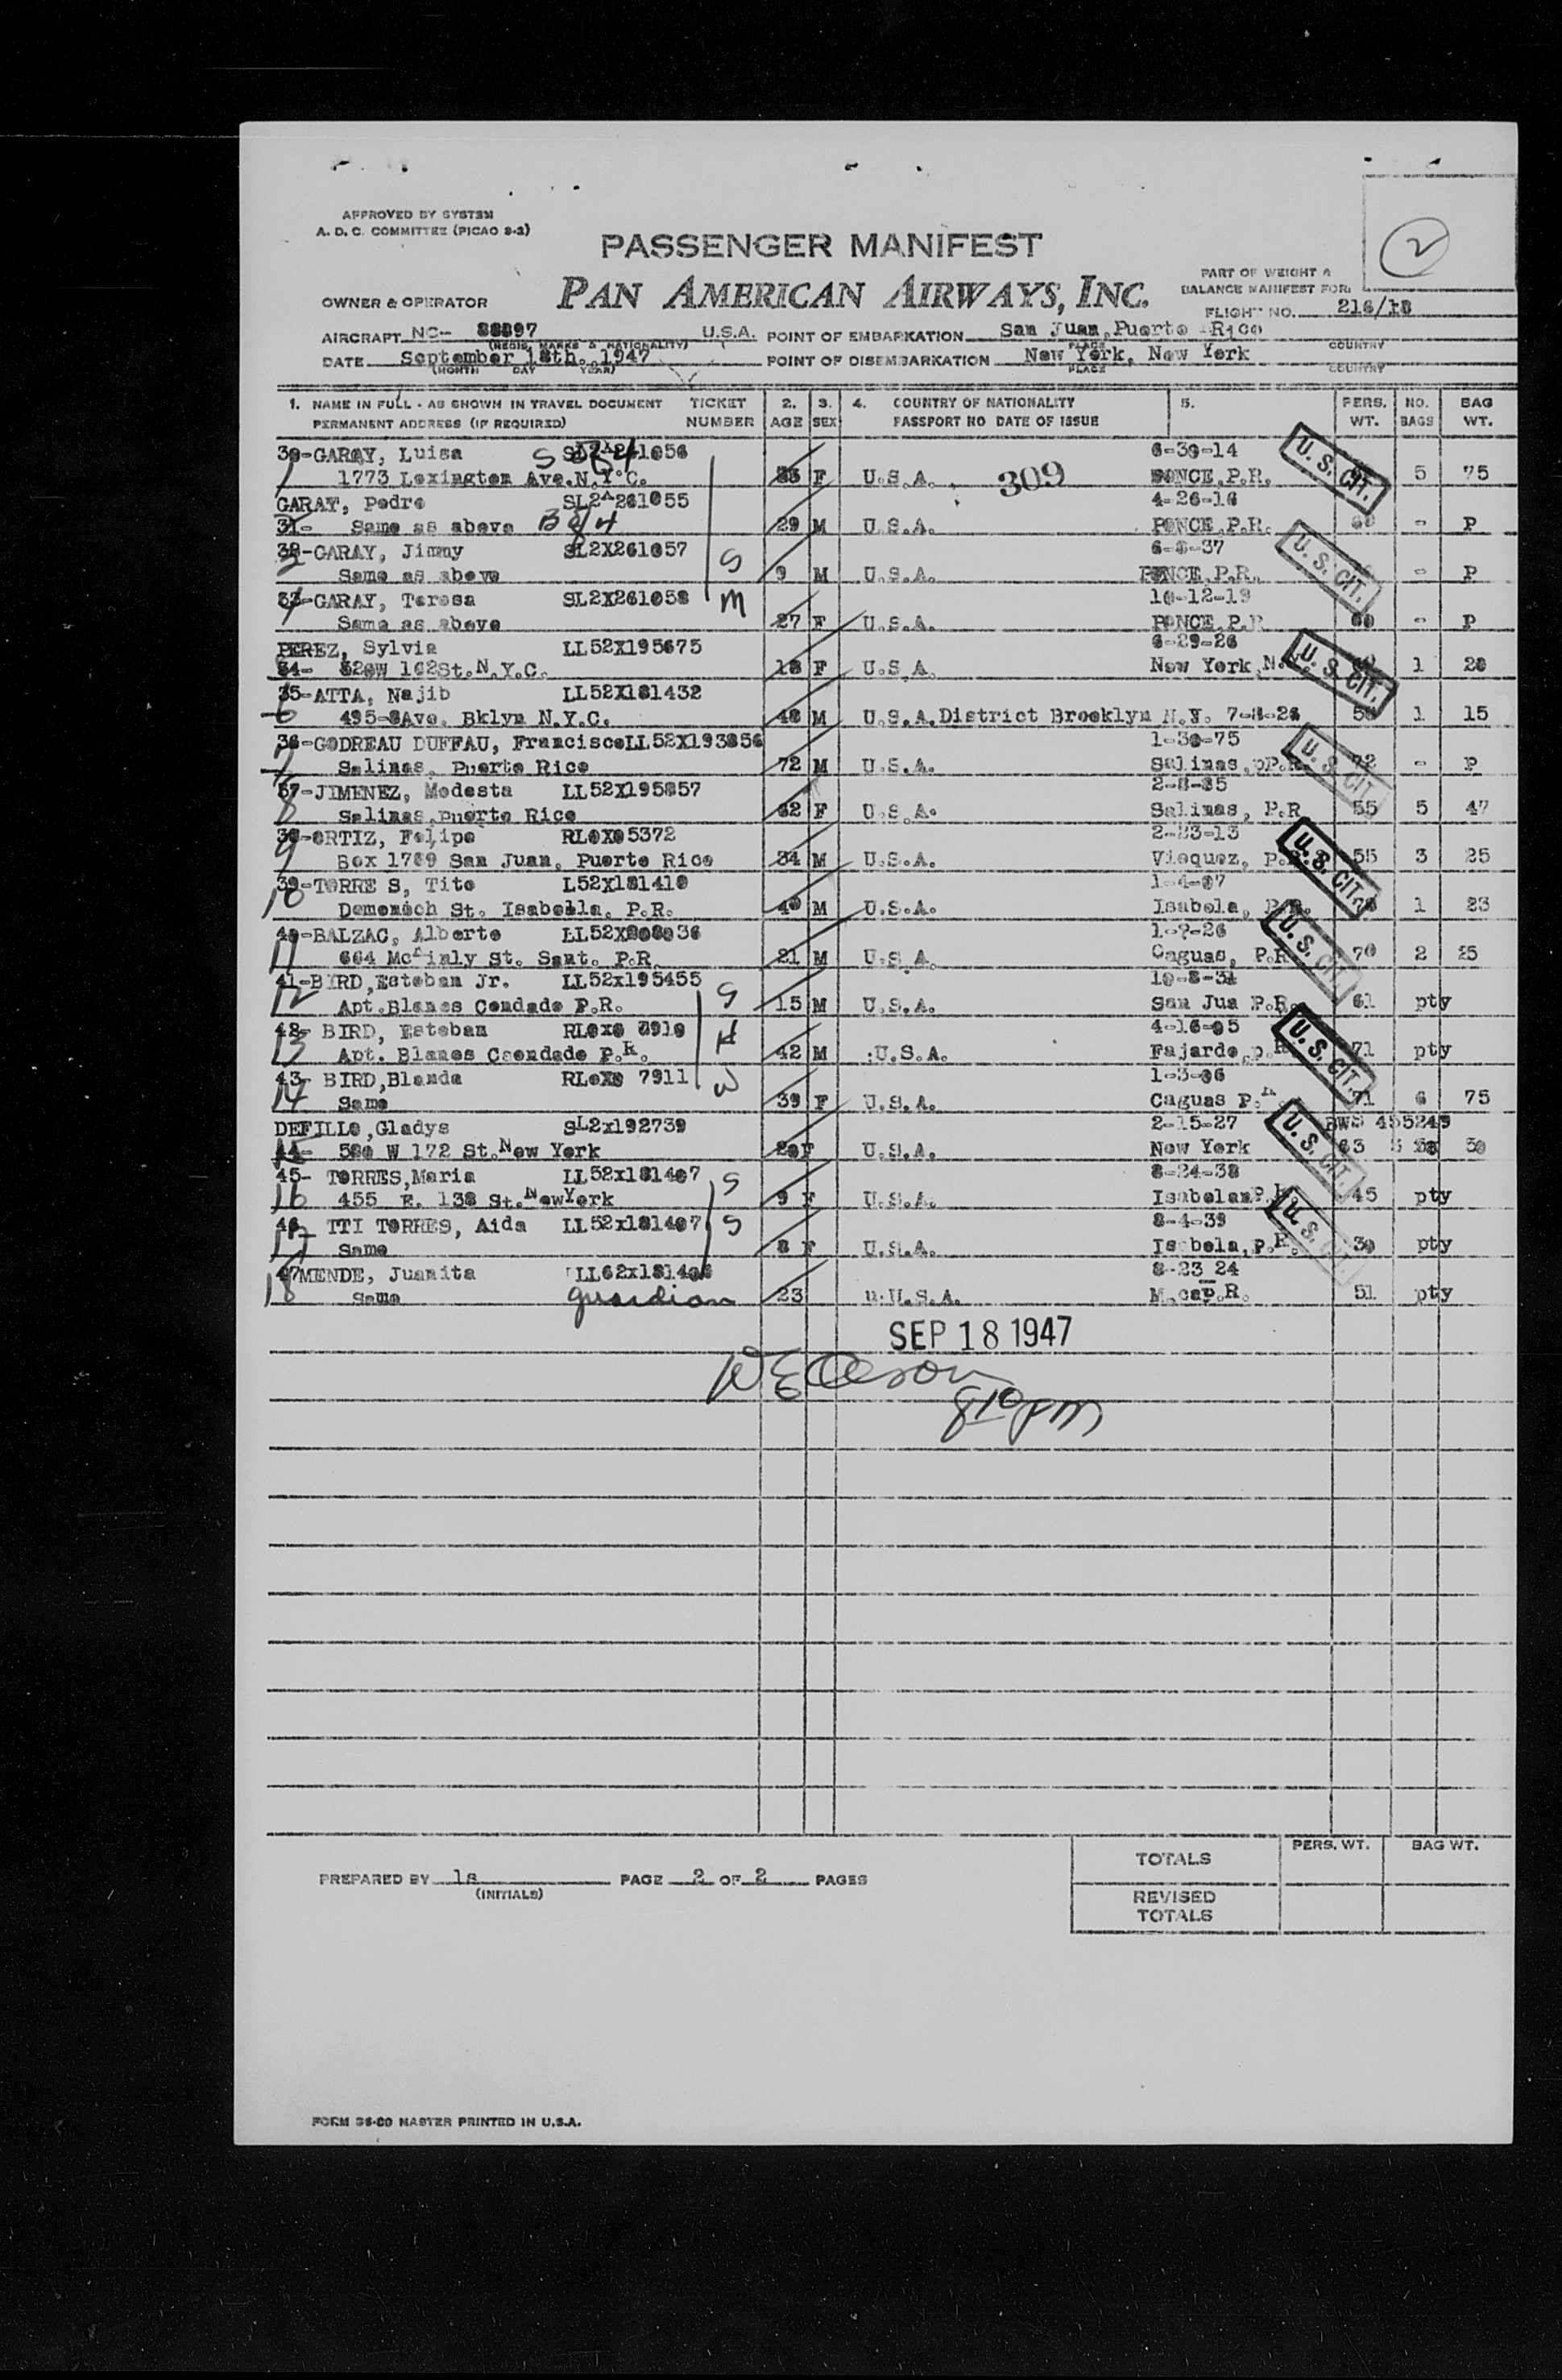 APPROVED BY SYSTEM
A. D. C. COMMITTEE (PICAO 8-2)
PASSENGER MANIFEST
2
PAN AMERICAN AIRWAYS, INC.
PART OF WEIGHT &
BALANCE MANIFEST FOR:
OWNER & OPERATOR
FLIGHT NO. 216/18
AIRCRAFT NC- 88897 U.S.A. POINT OF EMBARKATION San Juan, Puerto Rico
(REGIS. MARKS & NATIONALITY) PLACE COUNTRY
DATE September 18th. 1947 POINT OF DISEMBARKATION New York, New York
(MONTH DAY YEAR) PLACE COUNTRY
1. NAME IN FULL - AS SHOWN IN TRAVEL DOCUMENT TICKET 2. 3. 4. COUNTRY OF NATIONALITY 5. PERS. NO. BAG
PERMANENT ADDRESS (IF REQUIRED) NUMBER AGE SEX PASSPORT NO DATE OF ISSUE WT. BAGS WT.
30-GARAY, Luisa 6-30-14
1773 Lexington Ave.N.Y.C. 33 F U.S.A. 309 PONCE,P.R. U.S. CIT. 5 75
GARAY, Pedro 261055 4-26-18
31- Same as above 29 M U.S.A. PONCE,P.R. - P
32-GARAY, Jimmy SL2X261057 37
Same as above S 9 M U.S.A. PONCE,P.R. U.S. CIT. - P
33-GARAY, Teresa SL2X261058 M 10-12-19
Same as above 27 F U.S.A. PONCE,P.R - P
PEREZ, Sylvia LL52X195675 6-29-26
34- W 162St.N.Y.C. 18 F U.S.A. New York,N. U.S. CIT. 1 20
35-ATTA, Najib LL52X181432
495-8Ave. Bklyn N.Y.C. 48 M U.S.A.District Brooklyn N.Y. 7-8-26 1 15
36-GODREAU DUFFAU, FranciscoLL52X193856 1-30-75
Salinas, Puerto Rico 72 M U.S.A. Salinas, P.R. U.S. CIT. 72 - P
37-JIMENEZ, Modesta LL52X195857
Salinas,Puerto Rico 62 F U.S.A. Salinas, P.R 55 5 47
38-ORTIZ, Felipe RLOX05372 2-23-13
Box 1709 San Juan, Puerto Rico 34 M U.S.A. Viequez, P. U.S. CIT. 55 3 25
39-TORRE S, Tito L52X181410 1-4-07
10 Domenech St. Isabella, P.R. 40 M U.S.A. Isabela, P.R. 1 23
40-BALZAC, Alberto 1-?-26
11 664 St. Sant. P.R. 21 M U.S.A. Caguas, P.R U.S. CIT. 70 2 25
41-BIRD,Esteban Jr. LL52x195455 S
12 Apt.Blanes Condado P.R. 15 M U.S.A. San Jua P.R. 61 pty
42- BIRD, Esteban 4-16-05
13 Apt. Blanes Caondado P.R. H 42 M .U.S.A. Fajardo,p.R U.S. CIT. 71 pty
43- BIRD,Blanda RLoX0 7911 W 1-3-06
14 Same 39 F U.S.A. Caguas P.R. 71 6 75
DEFILLO,Gladys SL2x192739 2-15-27 455249
44- 580 W 172 St.New York 20F U.S.A. New York U.S. CIT. 63
45- TORRES,Maria LL52x181407 S 8-24-38
16 455 E. 138 St.NewYork 9 F U.S.A. 45 pty
46- TTI TORRES, Aida LL52x181407 S 8-4-39
17 Same 8 F U.S.A. Isabela,P.R. U.S. 30 pty
47MENDE, Juanita 8-23 24
18 Same guardian 23 U.S.A. 51 pty
SEP 18 1947
PREPARED BY ls PAGE 2 OF 2 PAGES
(INITIALS)
PERS. WT. BAG WT.
TOTALS
REVISED
TOTALS
FORM MASTER PRINTED IN U.S.A.